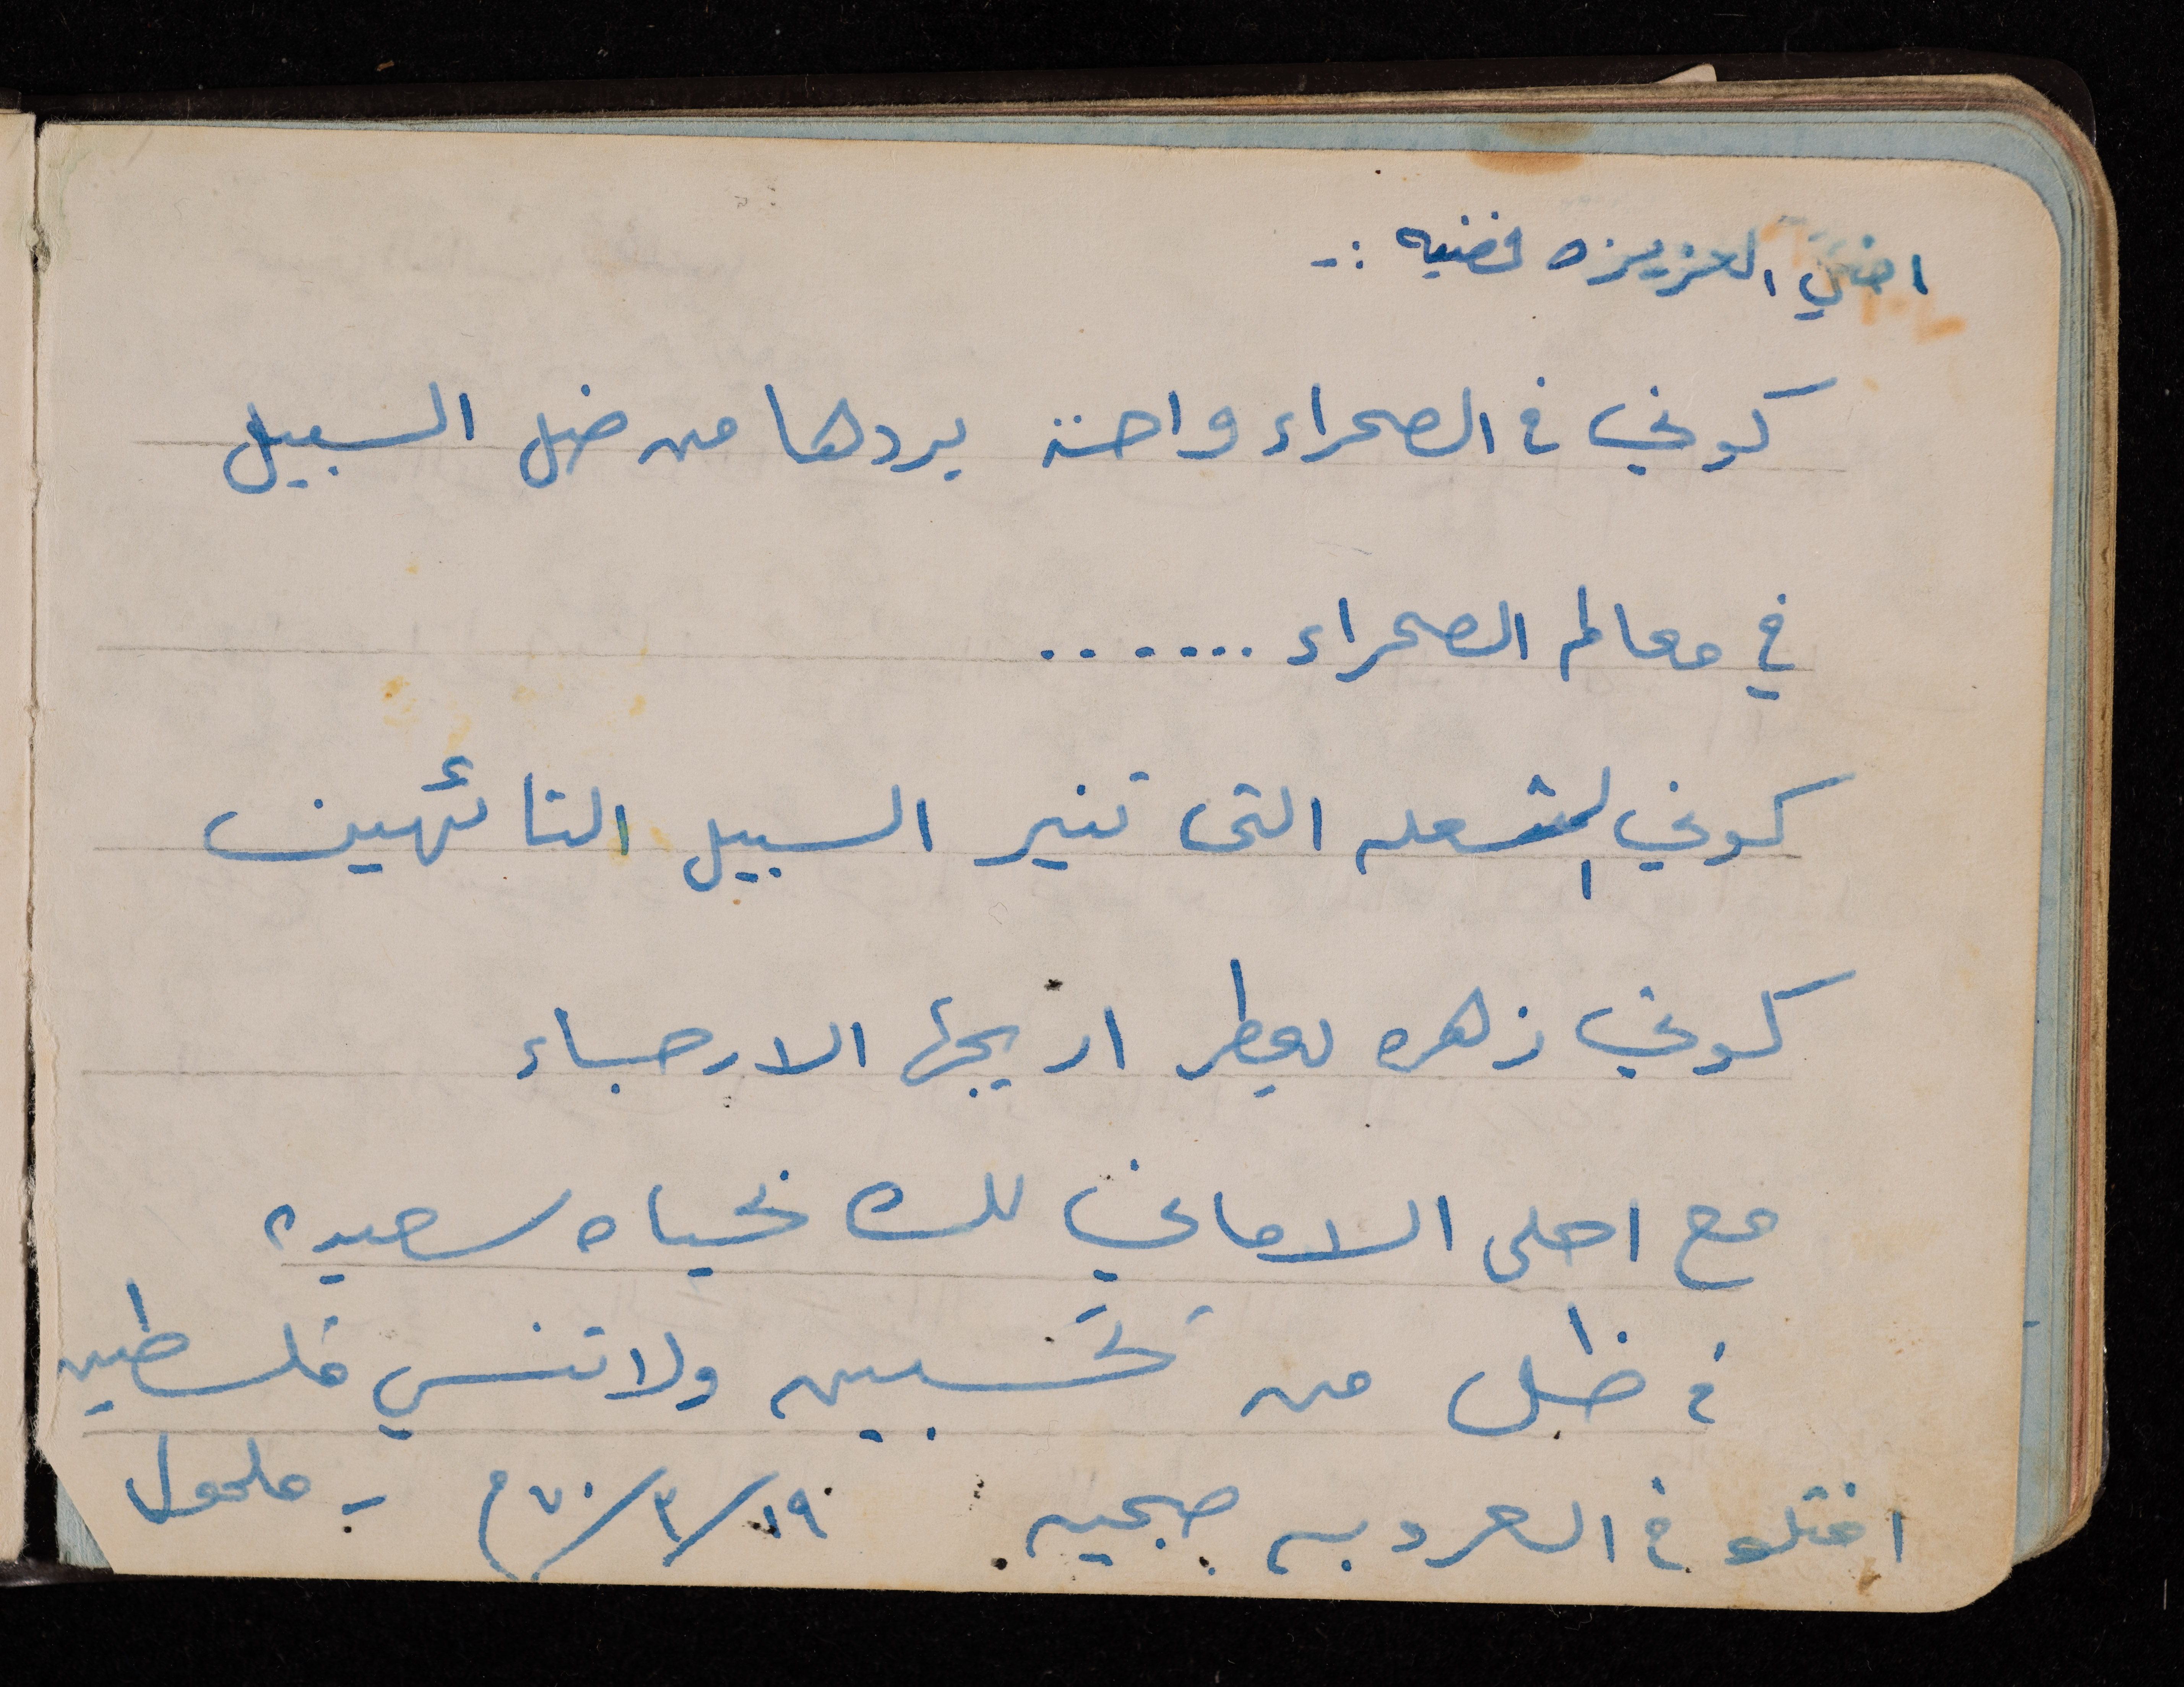 اختي العزيزه فضيه :-
كوني في الصحراء واحة يردها من ضل السبيل
في معالم الصحراء .......
كوني الشعله التى تنير السبيل التائهين
كوني زهره يعطر اريجها الارجاء
مع احلى الاماني لك بحياه سعيده
في ظل من تحبين ولا تنسي فلسطين
اختك في العروبه صبحيه ١٩/٣/٧٠م - حلحول